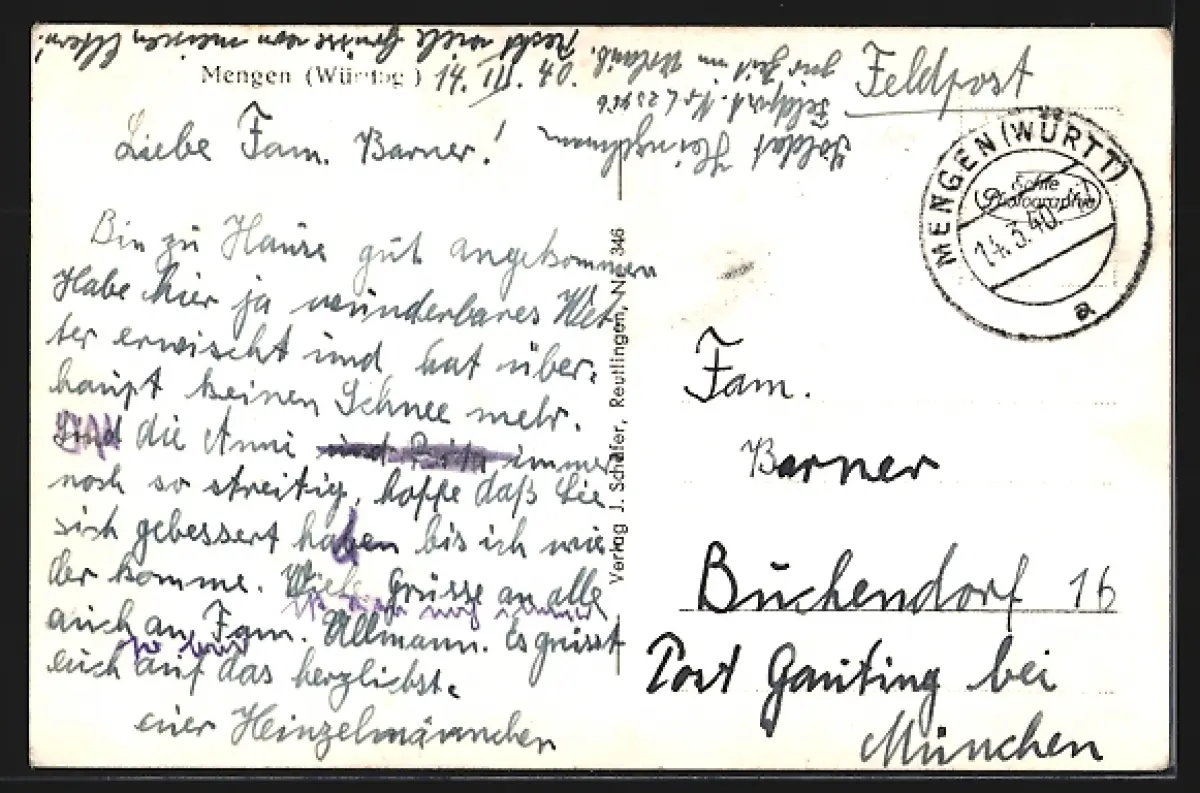 Recht viele Grüsse von meinen Eltern!
Mengen (Württbg.) 14. III. 40.
Liebe Fam. Barner!
Bin zu Hause gut angekommen
Habe hier ja wunderbares Wet-
ter erwischt und hat über-
haupt keinen Schnee mehr.
die Anni immer
noch so streitig, hoffe daß Sie
sich gebessert haben bis ich wie
der komme. Viele Grüsse an alle
auch an Fam. Ullmann. Es grüsst
euch auf das herzlichste
euer Heinzelmännchen
Soldat
Feldpost. Nr.
zur Zeit im Urlaub.
Feldpost
MENGEN (WÜRTT)
14.3.40.
a
Echte
Photographie
Verlag J. Schäfer, Reutlingen, Nr. 346
Fam.
Barner
Buchendorf 16
Post Gauting bei
München